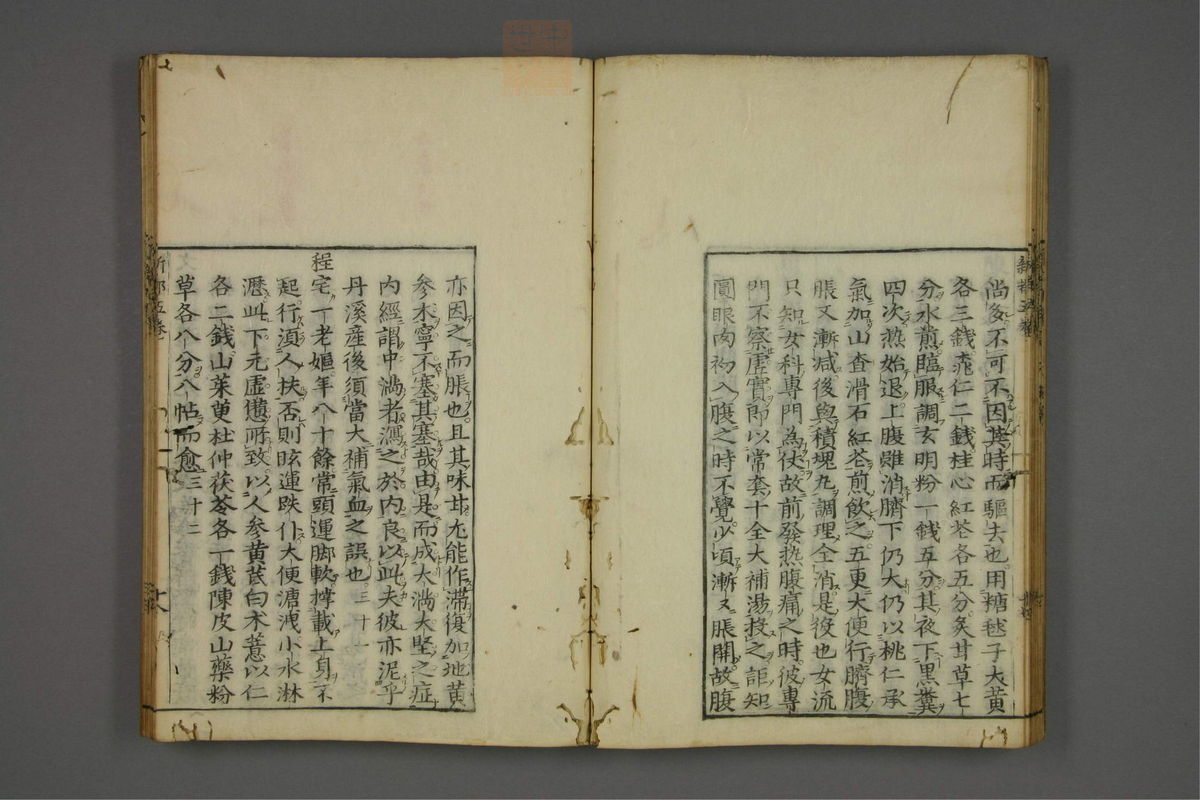 尚多不可不因其時而驅去也用糖毬子大黃
各三錢桃仁二錢桂心紅花各五分炙甘草七
分水煎臨服調玄明粉一錢五分其夜下黑糞
四次熱始退上腹雖消臍下仍大仍以桃仁承
氣加山查滑石紅花煎飲之五更大便行臍腹
脹又漸減後與積塊丸調理全消是後也女流
只知女科專門為仗故前發熱腹痛之時彼專
門不察虛實即以常套十全大補湯投之詎知
圓眼肉初入腹之時不覺少頃漸又脹開故腹
亦因之而脹也且其味甘尤能作滯復加地黃
參朮寧不塞其塞哉由是而成大滿大堅之症
內經謂中滿者瀉之於內良以此夫彼亦泥乎
丹溪產後須當大補氣血之誤也三十一
程宅一老嫗年八十餘常頭運脚軟撑載上身不
起行須人扶否則眩運跌仆大便溏洩小水淋
瀝此下元虛憊所致以人參黃芪白朮薏以仁
各二錢山茱萸杜仲茯苓各一錢陳皮山藥粉
草各八分八帖而愈三十二